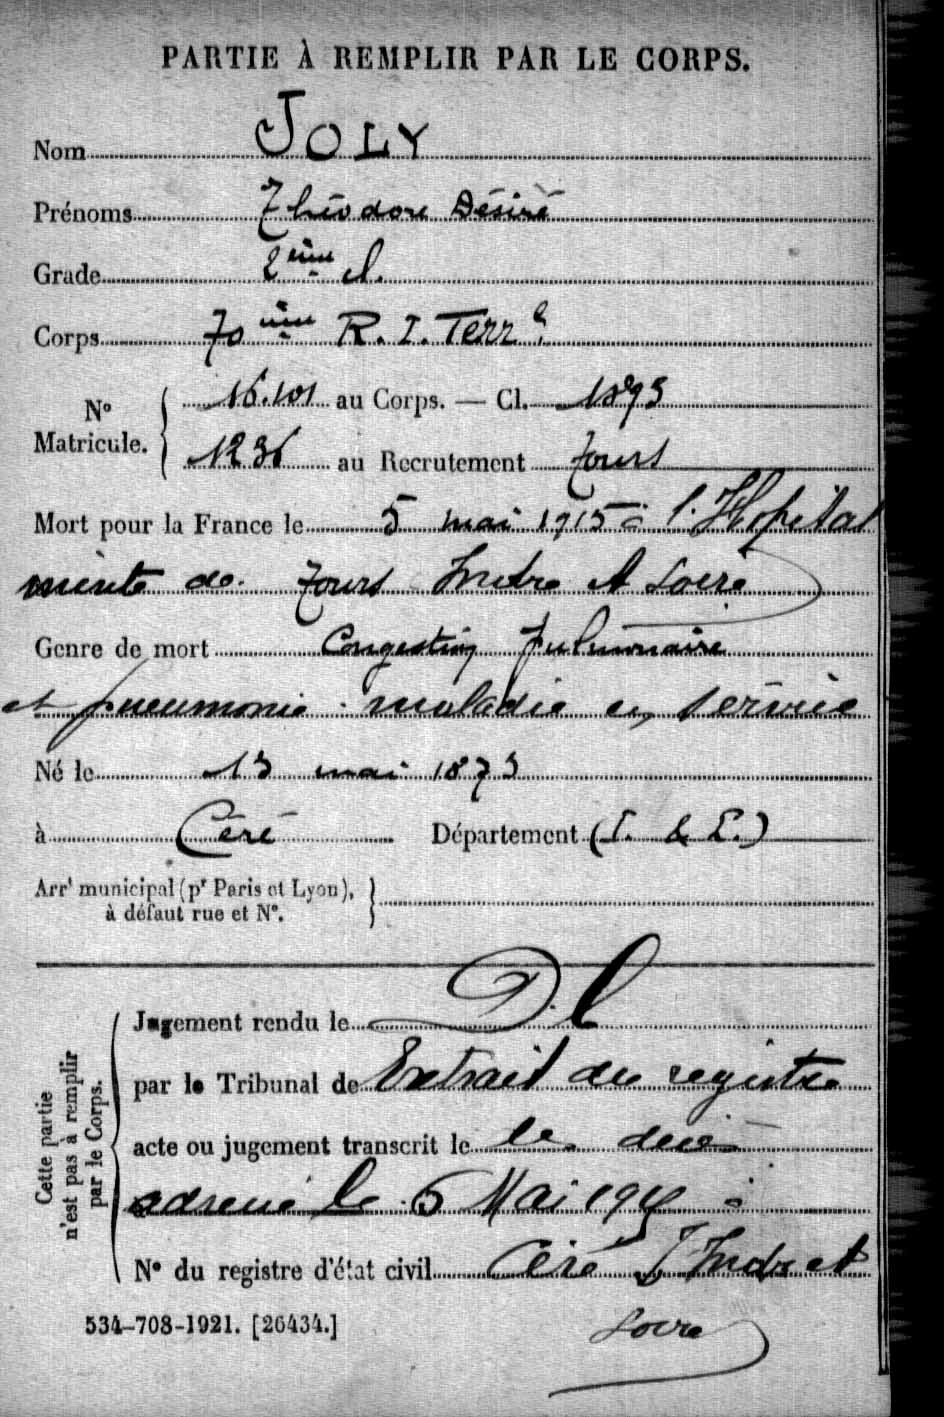 PARTIE À REMPLIR PAR LE CORPS.
Nom JOLY
Prénoms Théodore Désiré
Grade 2ème cl.
Corps 70ème R. I. Terr^l
N° Matricule. 16.101 au Corps. — Cl. 1893
1236 au Recrutement Tours
Mort pour la France le 5 mai 1915 à l'Hopital
mixte de Tours Indre et Loire
Genre de mort Congestion pulmonaire
et pneumonie maladie en service
Né le 13 mai 1873
à Céré Département (I. & L.)
Arr^t municipal (p^r Paris et Lyon), à défaut rue et N°.
Cette partie n'est pas à remplir par le Corps.
Jugement rendu le
par le Tribunal de Extrait du registre
acte ou jugement transcrit le
adressé le 6 Mai 1915 à
N° du registre d'état civil Céré Indre et
Loire
534-708-1921. [26434.]